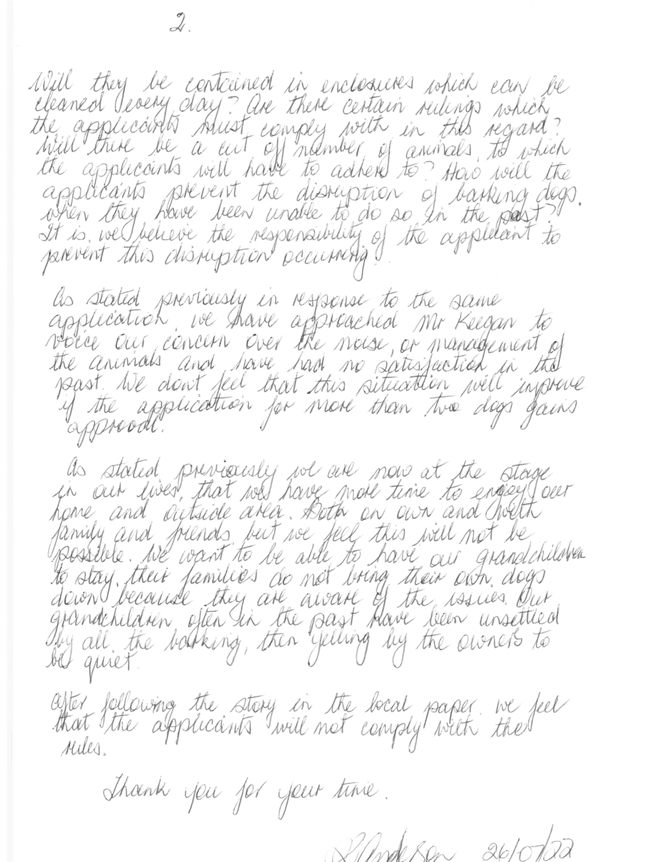 2.
Will they be contained in enclosures which can be
cleaned every day? Are there certain rulings which
the applicants must comply with in this regard?
Will there be a cut off number of animals, to which
the applicants will have to adhere to? How will the
applicants prevent the disruption of barking dogs,
when they have been unable to do so in the past?
It is, we believe the responsibility of the applicant to
prevent this disruption occurring.
As stated previously in response to the same
application, we have approached Mr Keegan to
voice our concern over the noise, or management of
the animals and have had no satisfaction in the
past. We don't feel that this situation will improve
if the application for more than two dogs gains
approval.
As stated previously we are now at the stage
in our lives, that we have more time to enjoy our
home and outside area. Both on own and with
family and friends, but we feel this will not be
possible. We want to be able to have our grandchildren
to stay, their families do not bring their own dogs
down because they are aware of the issues. Our
grandchildren, often in the past have been unsettled
by all the barking, then yelling by the owners to
be quiet.
After following the story in the local paper. we feel
that the applicants will not comply with the
rules.
Thank you for your time.
Anderson 26/07/22